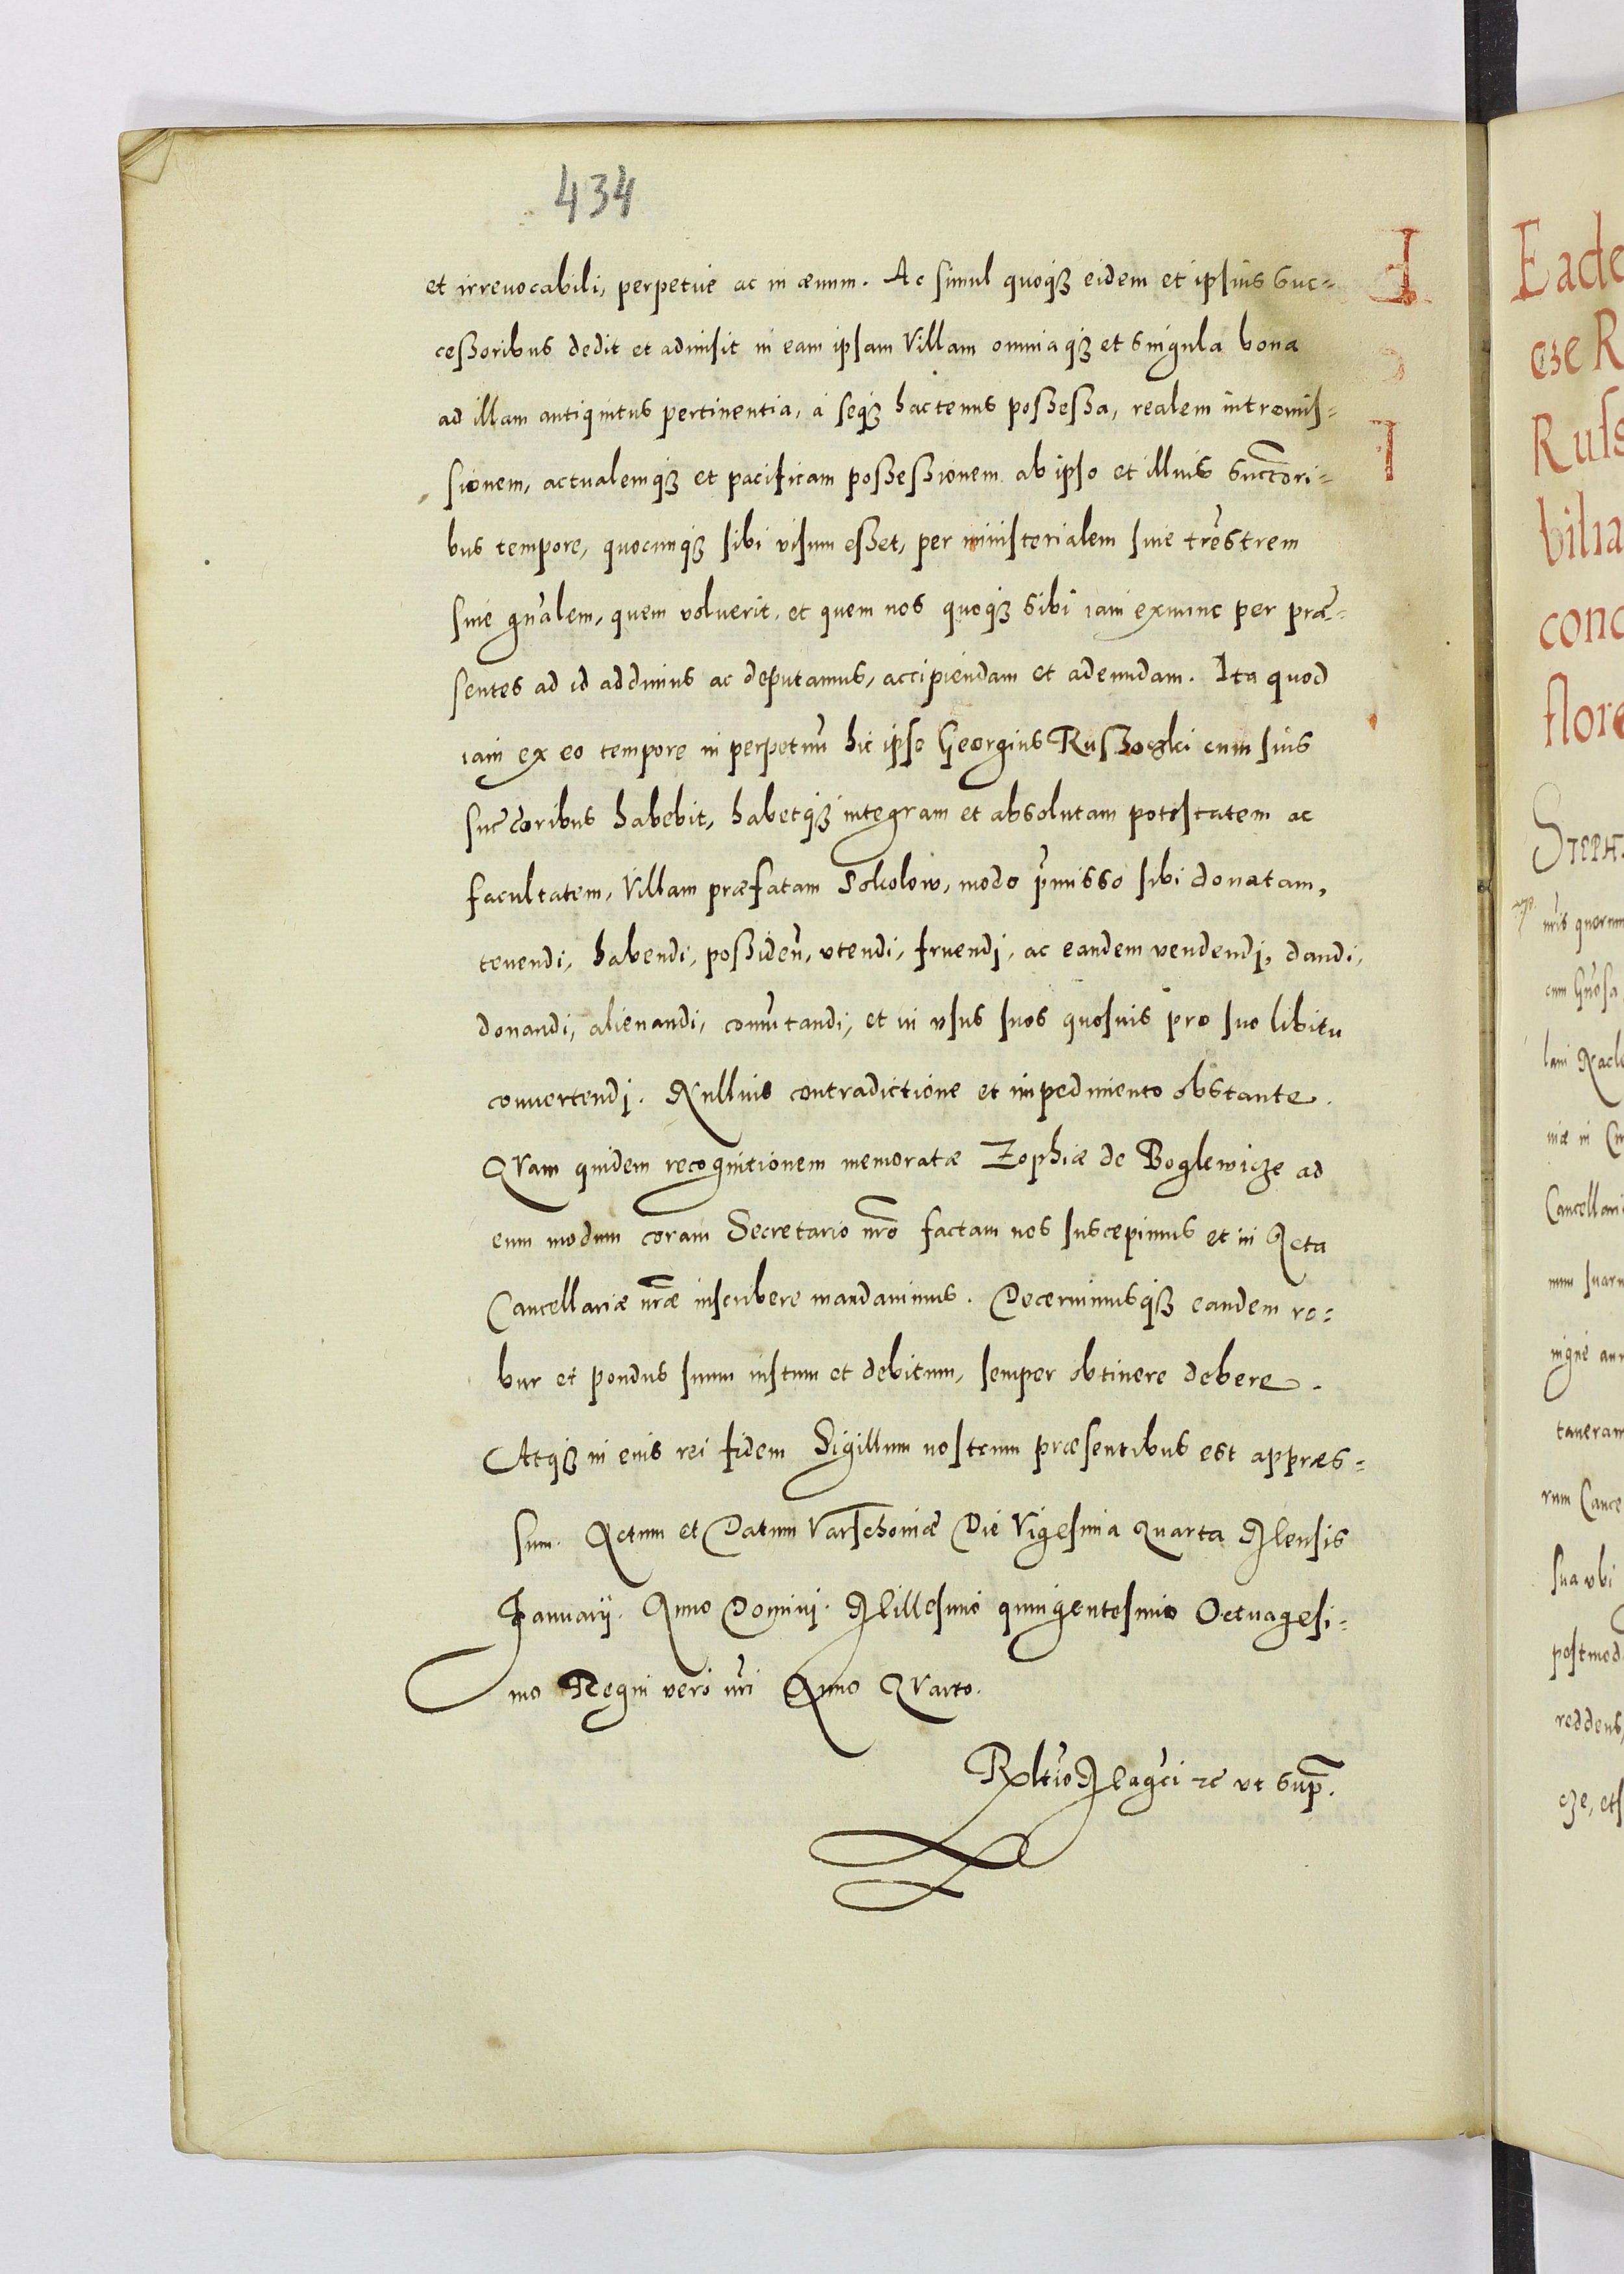 434
et irreuocabili, perpetue ac in æuum. Ac simul quoqꝫ eidem et ipsius Suc=
ceßoribus dedit et admisit in eam ipsam Villam omniaqꝫ et singula bona
ad illam antiquitus pertinentia, a seqꝫ hactenus poßeßa, realem intromis=
sionem, actualemqꝫ et pacificam poßeßionem ab ipso et illius Succ̃ori=
bus tempore, quocunqꝫ sibi visum eßet, per ministerialem siue tr̃estrem
siue gñalem, quem voluerit, et quem nos quoqꝫ sibi iam exnunc per præ=
sentes ad id addimus ac deputamus, accipiendam et adeundam. Ita quod
iam ex eo tempore in perpetuũ hic ipse Georgius Rußoczki cum suis
succ̃oribus habebit, habetqꝫ integram et absolutam potestatem ac
facultatem, Villam præfatam Sokolow, modo p̃misso sibi donatam,
tenendi, habendi, poßideñ, vtendi, fruendj, ac eandem vendendj, dandi,
donandi, alienandi, com̃utandi, et in vsus suos quosuis pro suo libitu
conuertendj. Nullius contradictione et impedimento obstante.
QVam quidem recognitionem memoratæ Zophiæ de Boglewicze ad
eum modum coram Secretario nr̃o factam nos suscepimus et in Acta
Cancellariæ nr̃æ inscribere mandauimus. Decernimusqꝫ eandem ro=
bur et pondus suum iustum et debitum, semper obtinere debere.
Atqꝫ in euis rei fidem Sigillum nostrum præsentibus est appræs=
sum. Actum et Datum Varschouiæ Die Vigesima Quarta Mensis
Januarij. Anno Dominj. Millesimo quingentesimo Octuagesi=
mo Regni vero nr̃i Anno QVarto.
Rltio Magci ꝛc vt sup̃.
Eade
cze R
Rus
bilia
conc
flore
STEPH
nr̃is quorum
cum Gñosa
lani Nacl
niæ in
Cancellari
num suaru
nigne ann
taueram
rum Cance
sua vbi
postmod
reddens,
cze, ets